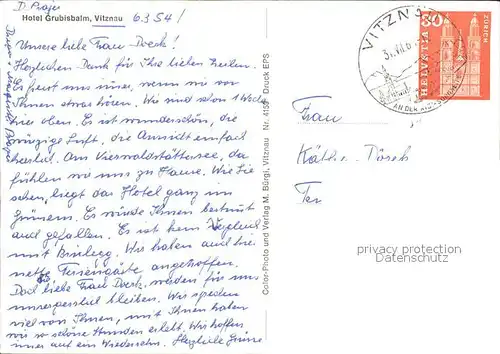 D. Prajer
Hotel Grubisbalm, Vitznau 6354!
Unsere liebe Frau Doeck!
Herzlichen Dank für Ihre lieben Zeilen.
Es freut uns immer, wenn wir von
Ihnen etwas hören. Wir sind schon 1 Woche
hier oben. Es ist wunderschön, die
würzige Luft, die Aussicht einfach
herrlich. Am Vierwaldstättersee, da
fühlen wir uns zu Hause. Wie Sie
sehen, liegt das Hotel ganz im
Grünen. Es würde Ihnen bestimmt
auch gefallen. Es ist kein Vergleich
mit Brixlegg. Wir haben auch hier
nette Feriengäste angetroffen.
Doch liebe Frau Doeck, werden für uns
unvergesslich bleiben. Wir sprechen
viel von Ihnen, mit Ihnen haben
wir so schöne Stunden erlebt. Wir hoffen
immer auf ein Wiedersehn. Herzliche Grüsse
Color-Photo und Verlag M. Bürgi, Vitznau Nr. 4159 Druck EPS
VITZNAU
AN DER
HELVETIA
30
ZÜRICH
Frau
Käthe
privacy protection
Datenschutz